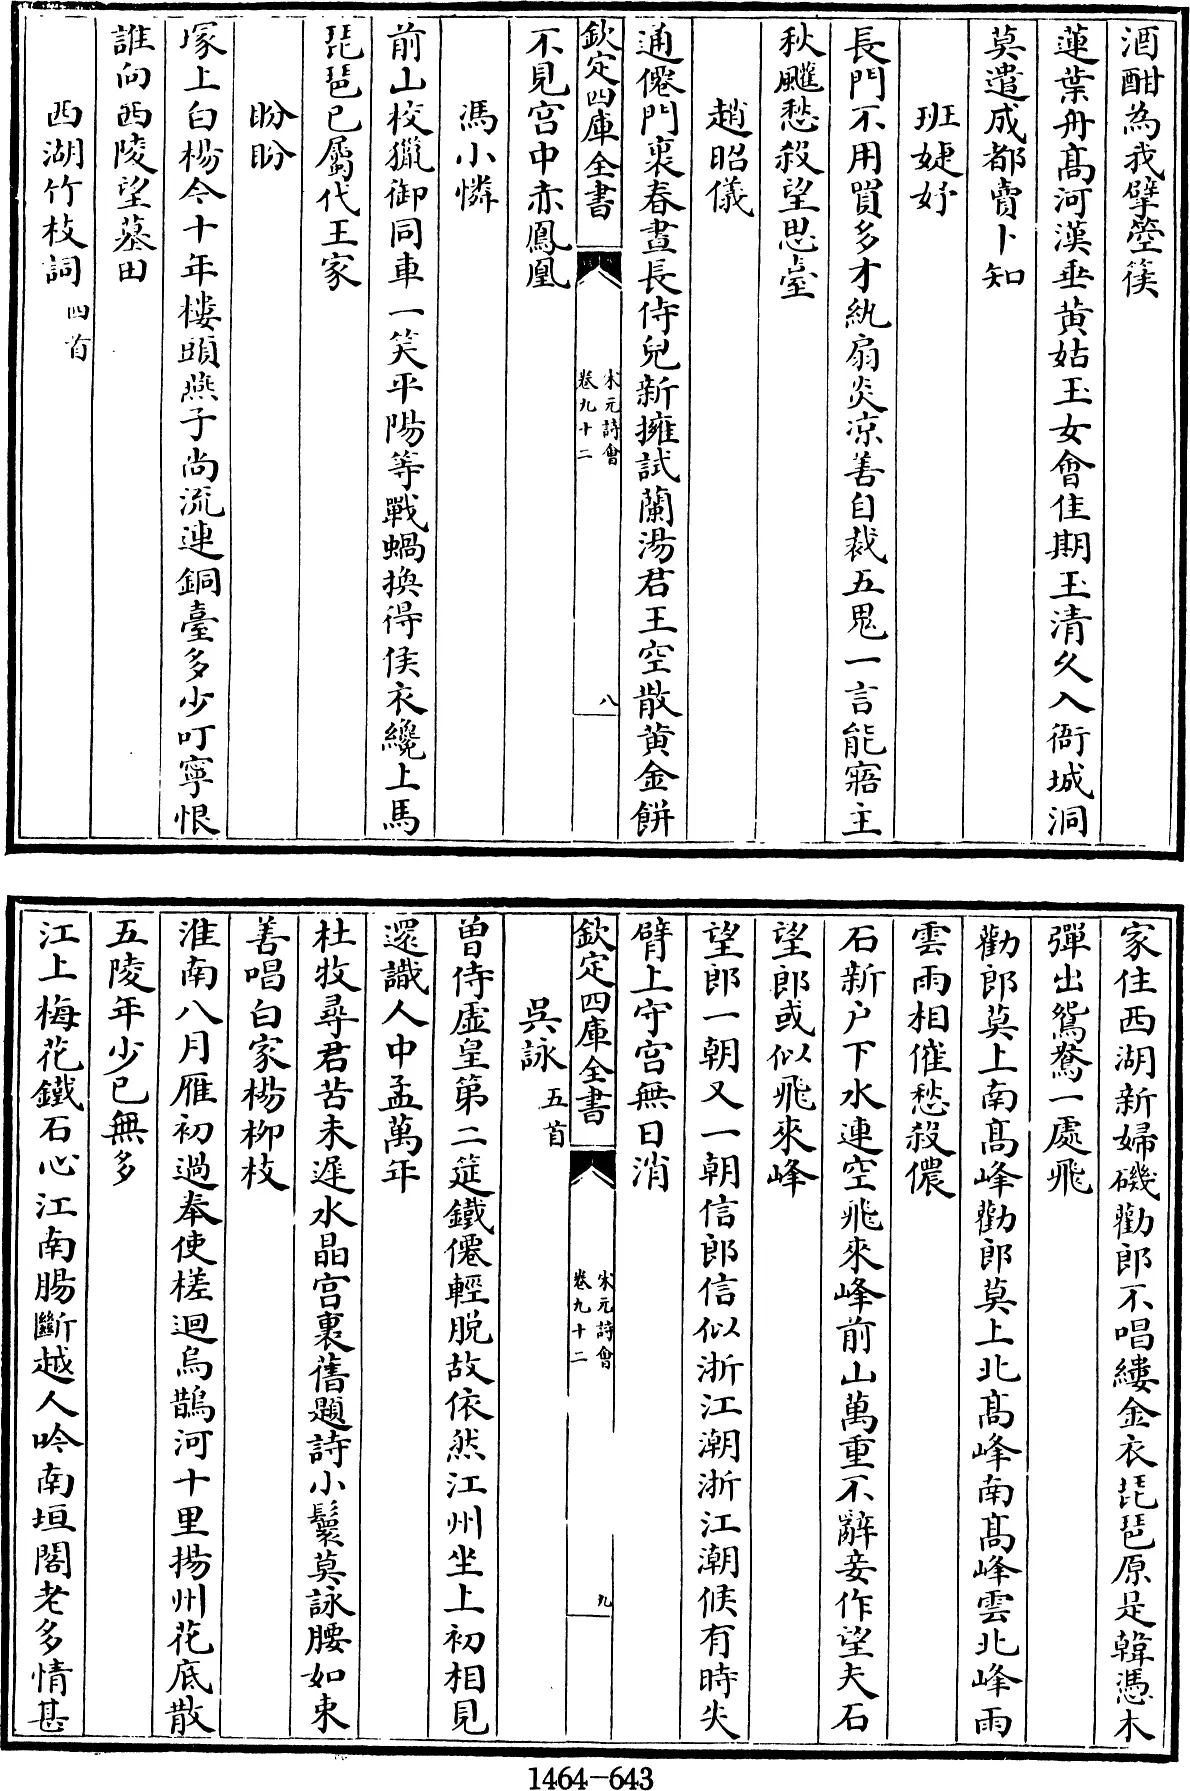 酒酣為我擘箜篌
蓮葉舟髙河漢垂黄姑玉女會佳期玉清久入衙城洞
莫遣成都賣卜知
班婕妤
長門不用買多才紈扇炎凉善自裁五鬼一言能寤主
秋颿愁殺望思臺
趙昭儀
通僊門裏春晝長侍兒新擁試蘭湯君王空散黄金餅
欽定四庫全書
宋元詩會
卷九十二
八
不見宫中赤鳳凰
馮小憐
前山校獵御同車一笑平陽等戰蝸換得侯衣纔上馬
琵琶已屬代王家
盼盼
塚上白楊今十年樓頭燕子尚流連銅臺多少叮寧恨
誰向西陵望墓田
西湖竹枝詞四首
家住西湖新婦磯勸郎不唱縷金衣琵琶原是韓憑木
彈出鴛鴦一處飛
勸郎莫上南髙峰勸郎莫上北髙峰南髙峰雲北峰雨
雲雨相催愁殺儂
石新户下水連空飛來峰前山萬重不辭妾作望夫石
望郎或似飛來峰
望郎一朝又一朝信郎信似浙江潮浙江潮候有時失
臂上守宫無日消
欽定四庫全書
宋元詩會
卷九十二
九
吳詠五首
曽侍虛皇第二筵鐵僊輕脱故依然江州坐上初相見
還識人中孟萬年
杜牧尋君苦未遲水晶宫裏舊題詩小鬟莫詠腰如束
善唱白家楊柳枝
淮南八月雁初過奉使槎迴烏鵲河十里揚州花底散
五陵年少已無多
江上梅花鐵石心江南腸斷越人吟南垣閣老多情甚
1464-643